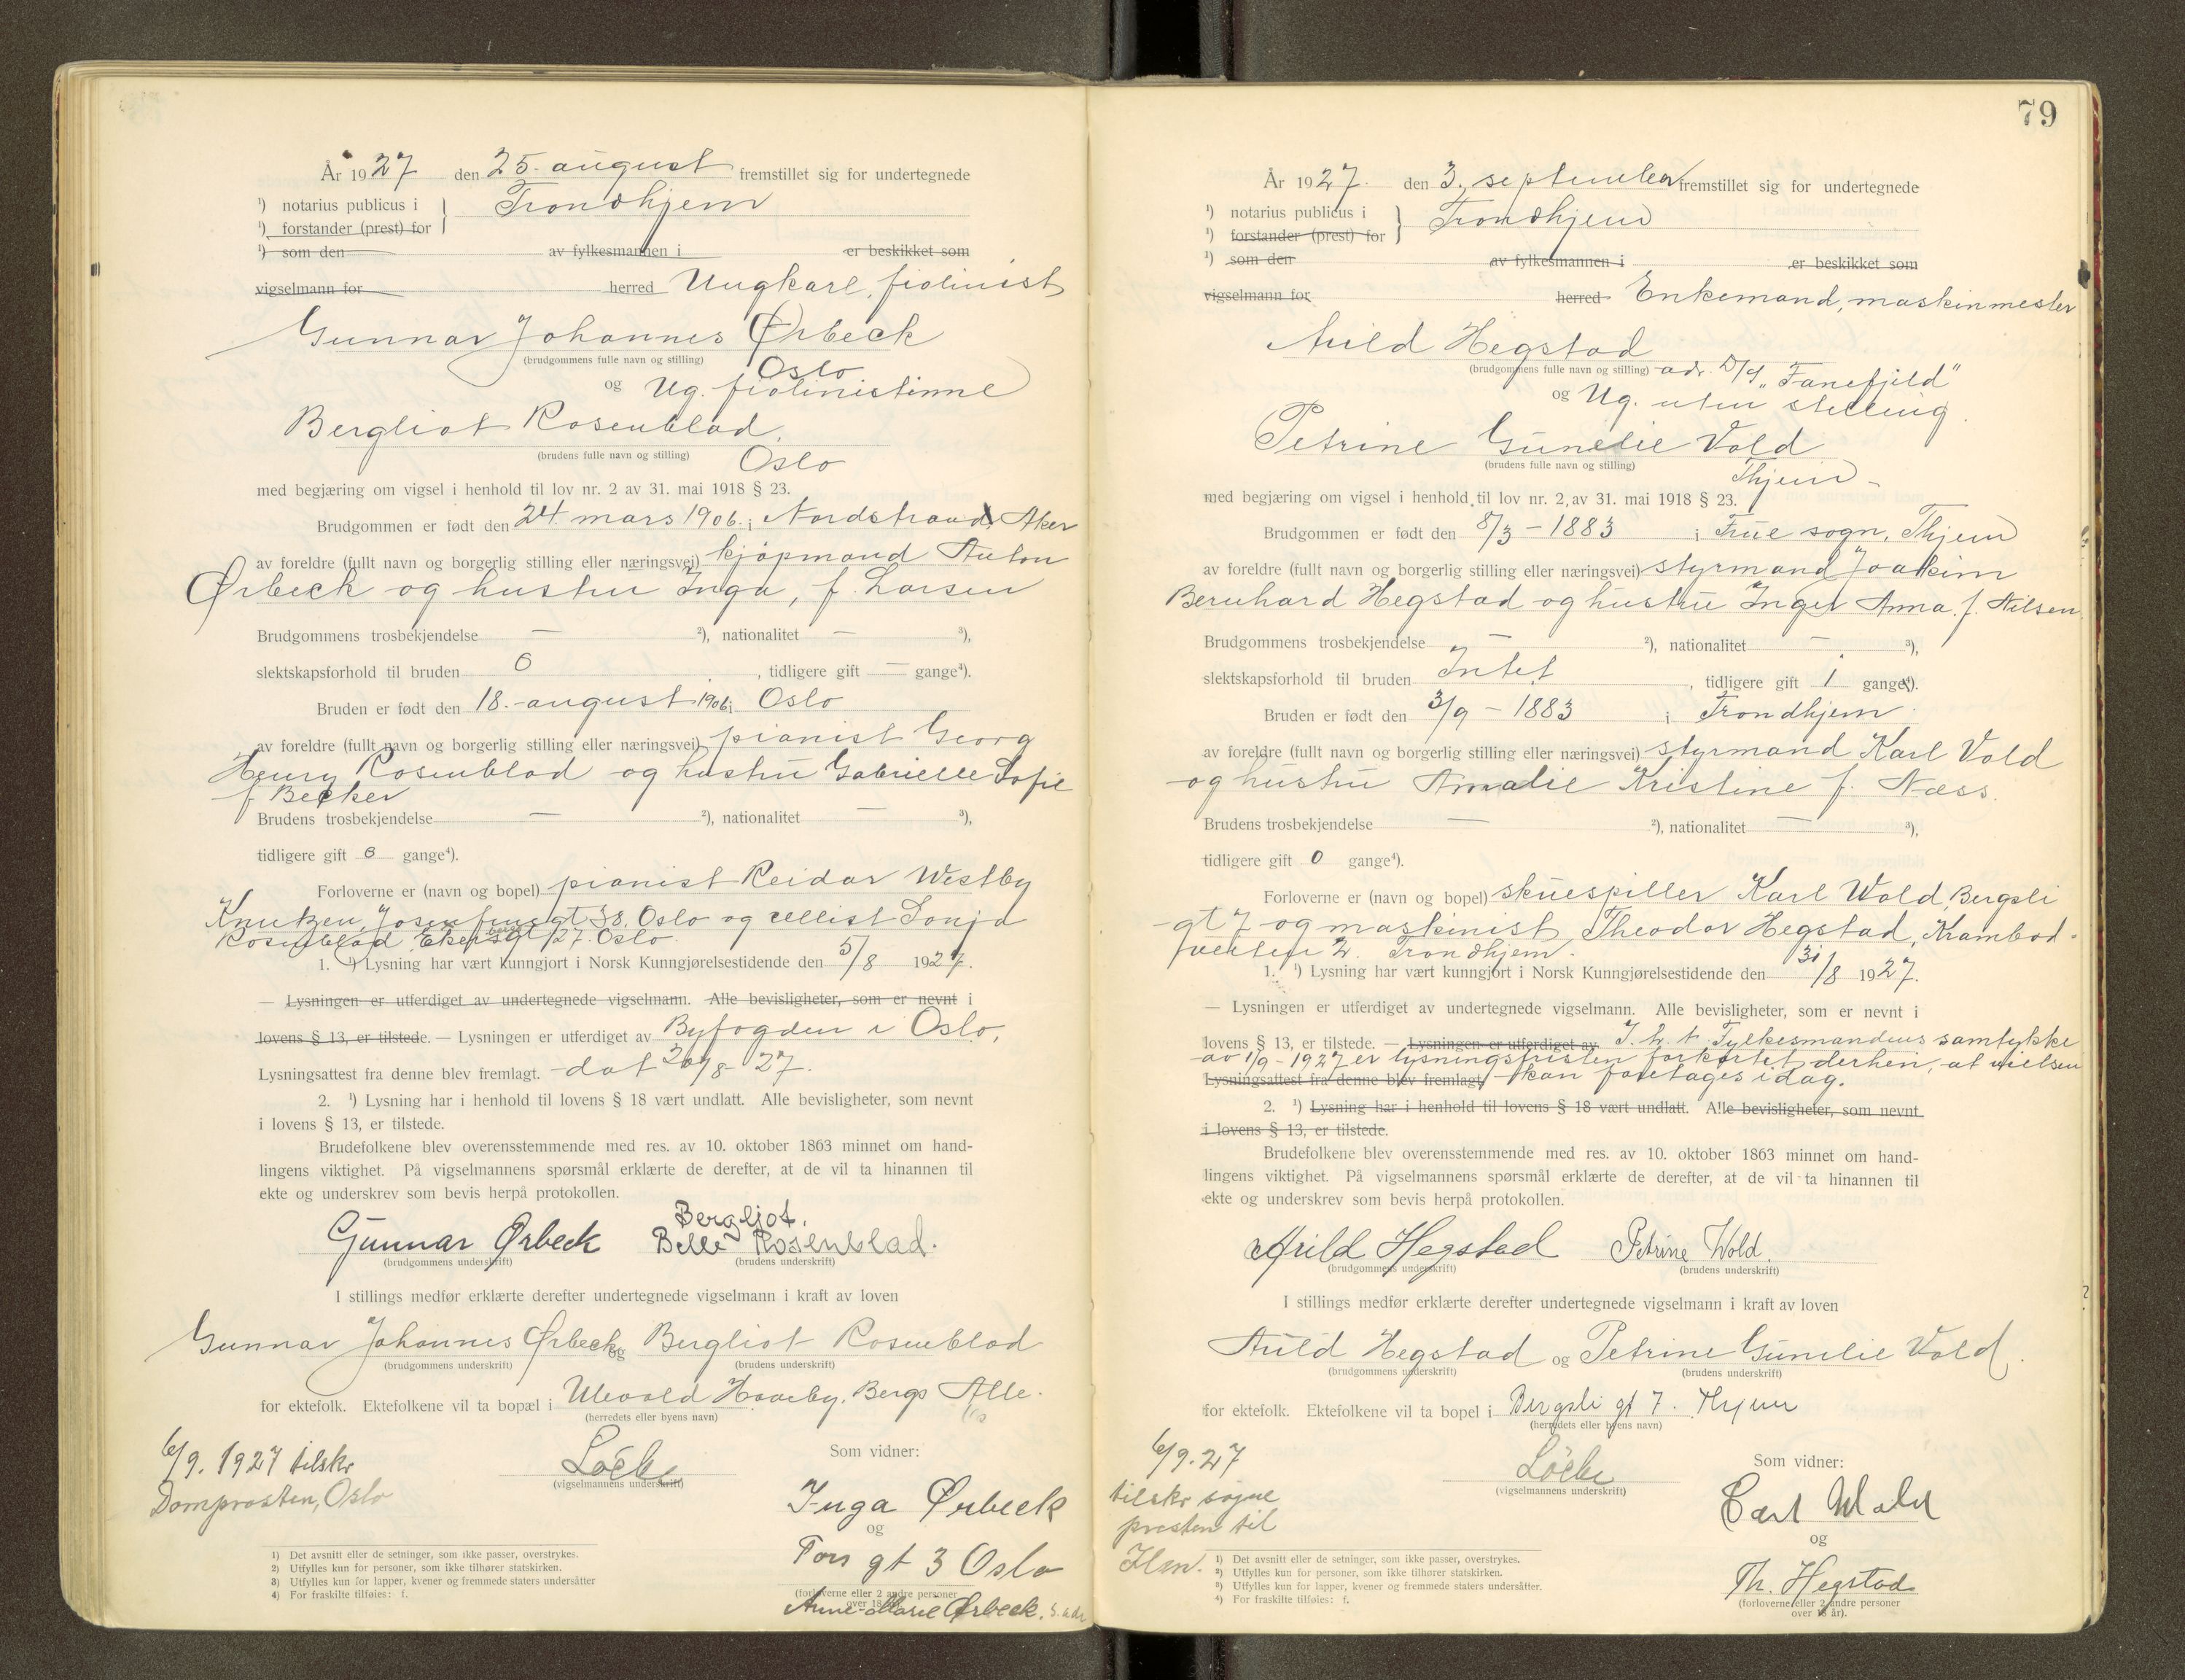 År 1927 den 25. august fremstillet sig for undertegnede
¹) notarius publicus i } Trondhjem
¹) forstander (prest) for
¹) som den av fylkesmannen i er beskikket som
vigselmann for herred Ungkarl, fiolinist
Gunnar Johannes Ørbeck
(brudgommens fulle navn og stilling) Oslo
og Ug. fiolinistinne
Bergliot Rosenblad
(brudens fulle navn og stilling) Oslo
med begjæring om vigsel i henhold til lov nr. 2 av 31. mai 1918 § 23.
Brudgommen er født den 24. mars 1906 i Nordstrand, Aker
av foreldre (fullt navn og borgerlig stilling eller næringsvei) kjøpmand Anton
Ørbeck og hustru Inga, f. Larsen
Brudgommens trosbekjendelse — ²), nationalitet — ³),
slektskapsforhold til bruden 0 , tidligere gift — gange⁴).
Bruden er født den 18. august 1906 i Oslo
av foreldre (fullt navn og borgerlig stilling eller næringsvei) pianist Georg
Henry Rosenblad og hustru Gabrielle Sofie
f Becker
Brudens trosbekjendelse — ²), nationalitet — ³),
tidligere gift 0 gange⁴).
Forloverne er (navn og bopel) pianist Reidar Westby
Knutzen, Josefinegt 38, Oslo og cellist Sonja
Rosenblad Ekersbergsgt 27. Oslo.
1. ¹) Lysning har vært kunngjort i Norsk Kunngjørelsestidende den 5/8 1927.
— Lysningen er utferdiget av undertegnede vigselmann. Alle bevisligheter, som er nevnt i
lovens § 13, er tilstede. — Lysningen er utferdiget av Byfogden i Oslo,
Lysningsattest fra denne blev fremlagt. dat 20/8 27.
2. ¹) Lysning har i henhold til lovens § 18 vært undlatt. Alle bevisligheter, som nevnt
i lovens § 13, er tilstede.
Brudefolkene blev overensstemmende med res. av 10. oktober 1863 minnet om hand-
lingens viktighet. På vigselmannens spørsmål erklærte de derefter, at de vil ta hinannen til
ekte og underskrev som bevis herpå protokollen.
Bergljot.
Gunnar Ørbeck Belle Rosenblad.
(brudgommens underskrift) (brudens underskrift)
I stillings medfør erklærte derefter undertegnede vigselmann i kraft av loven
Gunnar Johannes Ørbeck og Bergliot Rosenblad
(brudgommens underskrift) (brudens underskrift)
for ektefolk. Ektefolkene vil ta bopæl i Ulevold Haveby, Bergs Alle
(herredets eller byens navn)
6/9. 1927 tilskr
Domprosten, Oslo
(vigselmannens underskrift)
Som vidner:
Inga Ørbeck
og
Tors gt 3 Oslo
(forloverne eller 2 andre personer
over 18 år).
Anne-Marie Ørbeck. s. adr
1) Det avsnitt eller de setninger, som ikke passer, overstrykes.
2) Utfylles kun for personer, som ikke tilhører statskirken.
3) Utfylles kun for lapper, kvener og fremmede staters undersåtter
4) For fraskilte tilføies: f.
79
År 1927. den 3. september fremstillet sig for undertegnede
¹) notarius publicus i } Trondhjem
¹) forstander (prest) for
¹) som den av fylkesmannen i er beskikket som
vigselmann for herred Enkemand, maskinmester
Arild Hegstad
(brudgommens fulle navn og stilling) adr. D/S „Fanefjeld"
og Ug. uten stilling.
Petrine Gunelie Vold
(brudens fulle navn og stilling) Thjem
med begjæring om vigsel i henhold til lov nr. 2 av 31. mai 1918 § 23.
Brudgommen er født den 8/3 - 1883 i Frue sogn, Thjem
av foreldre (fullt navn og borgerlig stilling eller næringsvei) styrmand Joakim
Bernhard Hegstad og hustru Inger Anna f. Nilsen
Brudgommens trosbekjendelse — ²), nationalitet — ³),
slektskapsforhold til bruden Intet , tidligere gift 1 gange⁴).
Bruden er født den 3/9 - 1883 i Trondhjem
av foreldre (fullt navn og borgerlig stilling eller næringsvei) styrmand Karl Vold
og hustru Amalie Kristine f. Næss.
Brudens trosbekjendelse — ²), nationalitet — ³),
tidligere gift 0 gange⁴).
Forloverne er (navn og bopel) skuespiller Karl Wold, Bergsli
gt 7 og maskinist Theodor Hegstad, Krambod-
veiten 2. Trondhjem.
1. ¹) Lysning har vært kunngjort i Norsk Kunngjørelsestidende den 31/8 1927.
— Lysningen er utferdiget av undertegnede vigselmann. Alle bevisligheter, som er nevnt i
lovens § 13, er tilstede. — Lysningen er utferdiget av I. h. t. Fylkesmandens samtykke
av 1/9 - 1927 er lysningsfristen forkortet derhen, at vielsen
Lysningsattest fra denne blev fremlagt, kan foretages idag.
2. ¹) Lysning har i henhold til lovens § 18 vært undlatt. Alle bevisligheter, som nevnt
i lovens § 13, er tilstede.
Brudefolkene blev overensstemmende med res. av 10. oktober 1863 minnet om hand-
lingens viktighet. På vigselmannens spørsmål erklærte de derefter, at de vil ta hinannen til
ekte og underskrev som bevis herpå protokollen.
Arild Hegstad Petrine Wold.
(brudgommens underskrift) (brudens underskrift)
I stillings medfør erklærte derefter undertegnede vigselmann i kraft av loven
Arild Hegstad og Petrine Gunelie Vold.
(brudgommens underskrift) (brudens underskrift)
for ektefolk. Ektefolkene vil ta bopel i Bergsli gt 7. Thjem
(herredets eller byens navn)
6/9. 27
tilskr sogne
presten til
Ilen.
(vigselmannens underskrift)
Som vidner:
Carl Wold
og
Th. Hegstad
(forloverne eller 2 andre personer
over 18 år).
¹) Det avsnitt eller de setninger, som ikke passer, overstrykes.
²) Utfylles kun for personer, som ikke tilhører statskirken.
³) Utfylles kun for lapper, kvener og fremmede staters undersåtter.
⁴) For fraskilte tilføies: f.